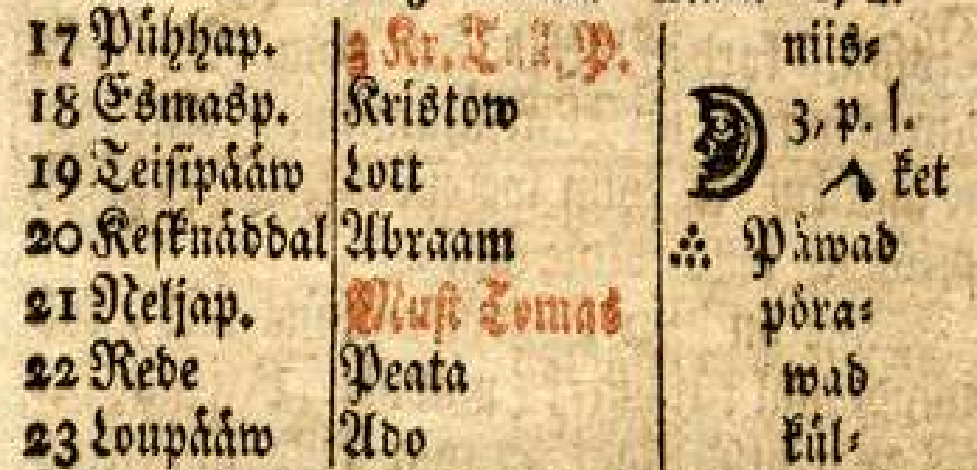 17 Pühhap. 3 Kr. T. P. niis⸗
18 Esmasp. Kristow 3, p. l.
19 Teisipääw Lott ket
20 Kesknäddal Abraam Päwad
21 Neljap. Must Tomas pöra⸗
22 Rede Peata wad
23 Loupääw Ado kül⸗